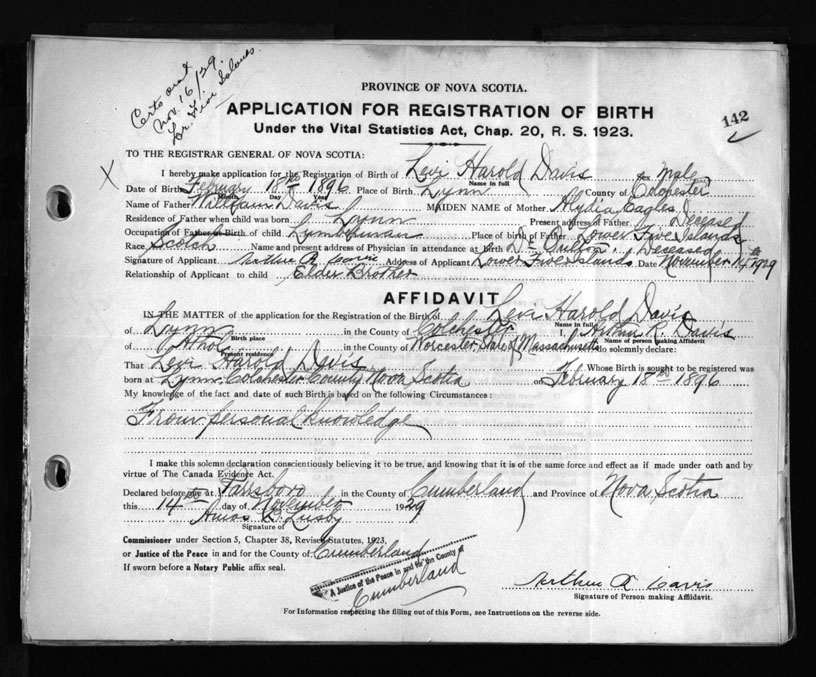 Certs and
Nov. 16/29.
Lr. Five Islands.
PROVINCE OF NOVA SCOTIA.
APPLICATION FOR REGISTRATION OF BIRTH
142
Under the Vital Statistics Act, Chap. 20, R. S. 1923.
TO THE REGISTRAR GENERAL OF NOVA SCOTIA:
X
I hereby make application for the Registration of Birth of Levi Harold Davis sex Male
Name in full
Date of Birth February 18th 1896 Place of Birth Lynn County of Colchester
Month Day Year
Name of Father William Davis MAIDEN NAME of Mother Alydia Eagles
Residence of Father when child was born Lynn Present address of Father Deceased
Occupation of Father at Birth of child Lumberman Place of birth of Father Lower Five Islands
Race Scotch Name and present address of Physician in attendance at Birth D. E. Deceased
Signature of Applicant Arthur R Davis Address of Applicant Lower Five Islands Date November 14th 1929
Relationship of Applicant to child Elder Brother
AFFIDAVIT
IN THE MATTER of the application for the Registration of the Birth of Levi Harold Davis
Name in full
of Lynn in the County of Colchester I, Arthur R. Davis
Birth place Name of person making Affidavit
of Athol in the County of Worcester, State of Massachusetts do solemnly declare:
Present residence
That Levi Harold Davis Whose Birth is sought to be registered was
born at Lynn, Colchester County Nova Scotia on February 18th 1896
My knowledge of the fact and date of such Birth is based on the following Circumstances:
From personal knowledge
I make this solemn declaration conscientiously believing it to be true, and knowing that it is of the same force and effect as if made under oath and by
virtue of The Canada Evidence Act.
Declared before me at Parrsboro in the County of Cumberland and Province of Nova Scotia
this 14th day of November 1929
Amos D. Lusby
Signature of
Commissioner under Section 5, Chapter 38, Revised Statutes, 1923,
or Justice of the Peace in and for the County of Cumberland
If sworn before a Notary Public affix seal.
A Justice of the Peace in and for the County of
Cumberland
Arthur R Davis
Signature of Person making Affidavit.
For Information respecting the filling out of this Form, see Instructions on the reverse side.